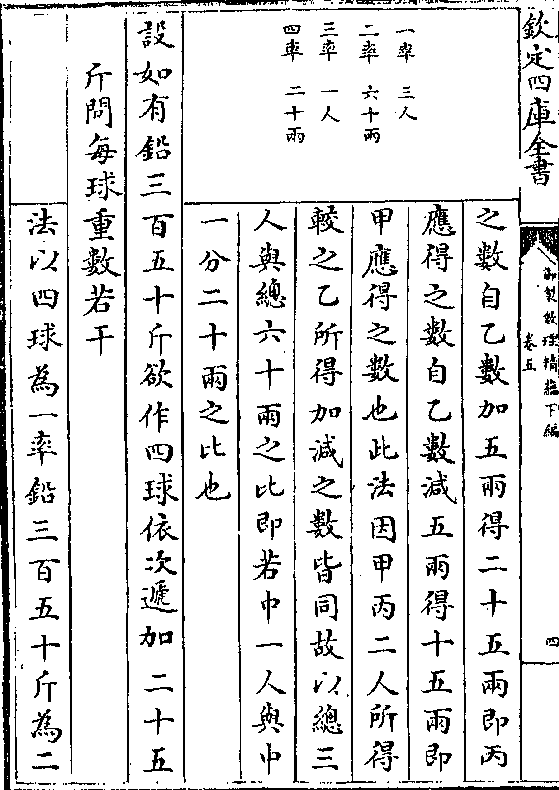 欽定四庫全書
御製數理精蘊下編
卷五
四
之數自乙數加五兩得二十五兩即丙
應得之數自乙數減五兩得十五兩即
甲應得之數也此法因甲丙二人所得
較之乙所得加減之數皆同故以總三
人與總六十兩之比即若中一人與中
一分二十兩之比也
一率 三人
二率 六十兩
三率 一人
四率 二十兩
設如有鉛三百五十斤欲作四球依次遞加二十五
斤問每球重數若干
法以四球為一率鉛三百五十斤為二